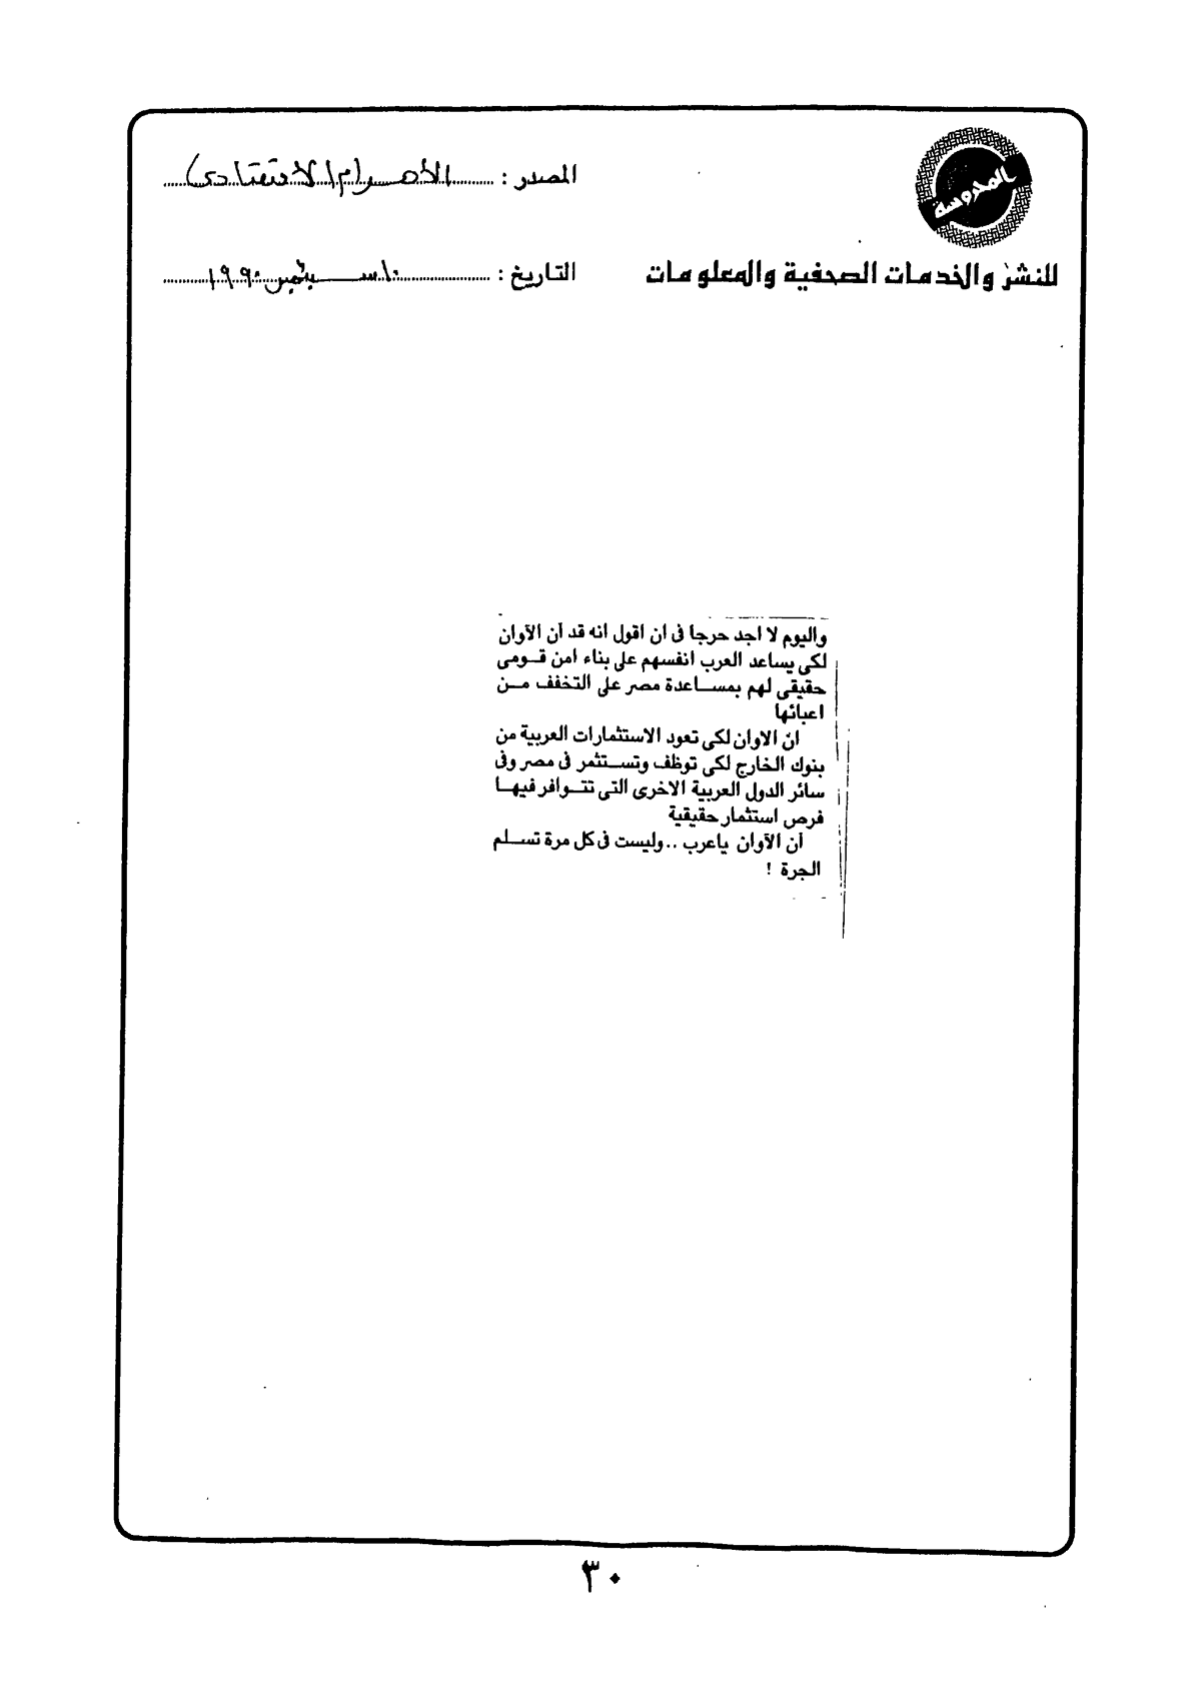 المحروسة
المصدر : الأهرام الاقتصادى
للنشر والخدمات الصحفية والمعلومات
التاريخ : ١٠ سبتمبر ١٩٩٠
واليوم لا اجد حرجا فى ان اقول انه قد آن الآوان
لكى يساعد العرب انفسهم على بناء امن قـومى
حقيقى لهم بمسـاعدة مصر على التخفف مـن
اعبائها
ان الاوان لكى تعود الاستثمارات العربية من
بنوك الخارج لكى توظف وتسـتثمر فى مصر وفى
سائر الدول العربية الاخرى التى تتـوافر فيهـا
فرص استثمار حقيقية
آن الآوان ياعرب .. وليست فى كل مرة تسـلم
الجرة !
٣٠